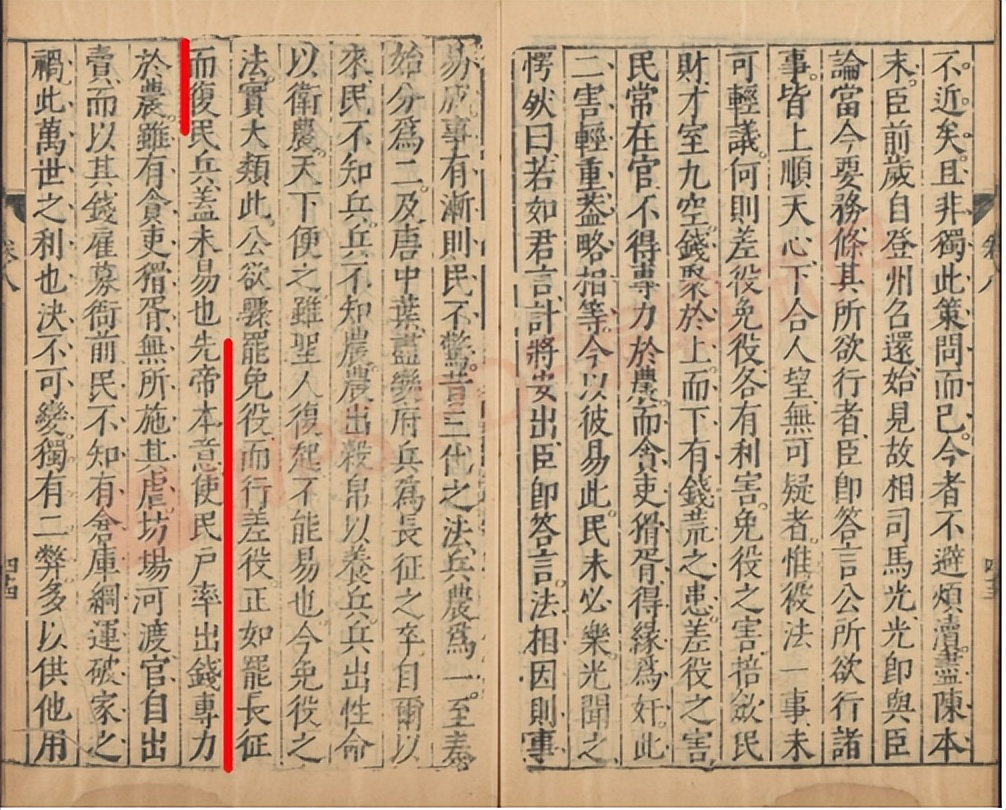 卷八
不近矣且非獨此策問而已今者不避煩瀆盡陳本
末臣前歲自登州召還始見故相司馬光光即與臣
論當今要務條其所欲行者臣即答言公所欲行諸
事皆上順天心下合人望無可疑者惟役法一事未
可輕議何則差役免役各有利害免役之害掊斂民
財才室九空錢聚於上而下有錢荒之患差役之害
民常在官不得專力於農而貪吏猾胥得緣爲奸此
二害輕重蓋略相等今以彼易此民未必樂光聞之
愕然曰若如君言計將安出臣即答言法相因則事
易成事有漸則民不驚昔三代之法兵農爲一至秦
始分爲二及唐中葉盡變府兵爲長征之卒自爾以
來民不知兵兵不知農農出穀帛以養兵兵出性命
以衛農天下便之雖聖人復起不能易也今免役之
法實大類此公欲驟罷免役而行差役正如罷長征
而復民兵蓋未易也先帝本意使民戶率出錢專力
於農雖有貪吏猾胥無所施其虐坊場河渡官自出
賣而以其錢雇募衙前民不知有倉庫綱運破家之
禍此萬世之利也決不可變獨有二弊多以供他用
卷八